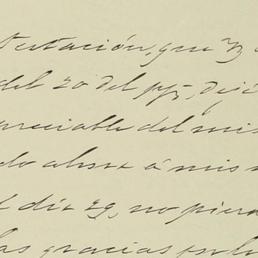 testación, que
del 20 del pp.
preciable del mis
do ahora á mis
l dia 29, no
las gracias